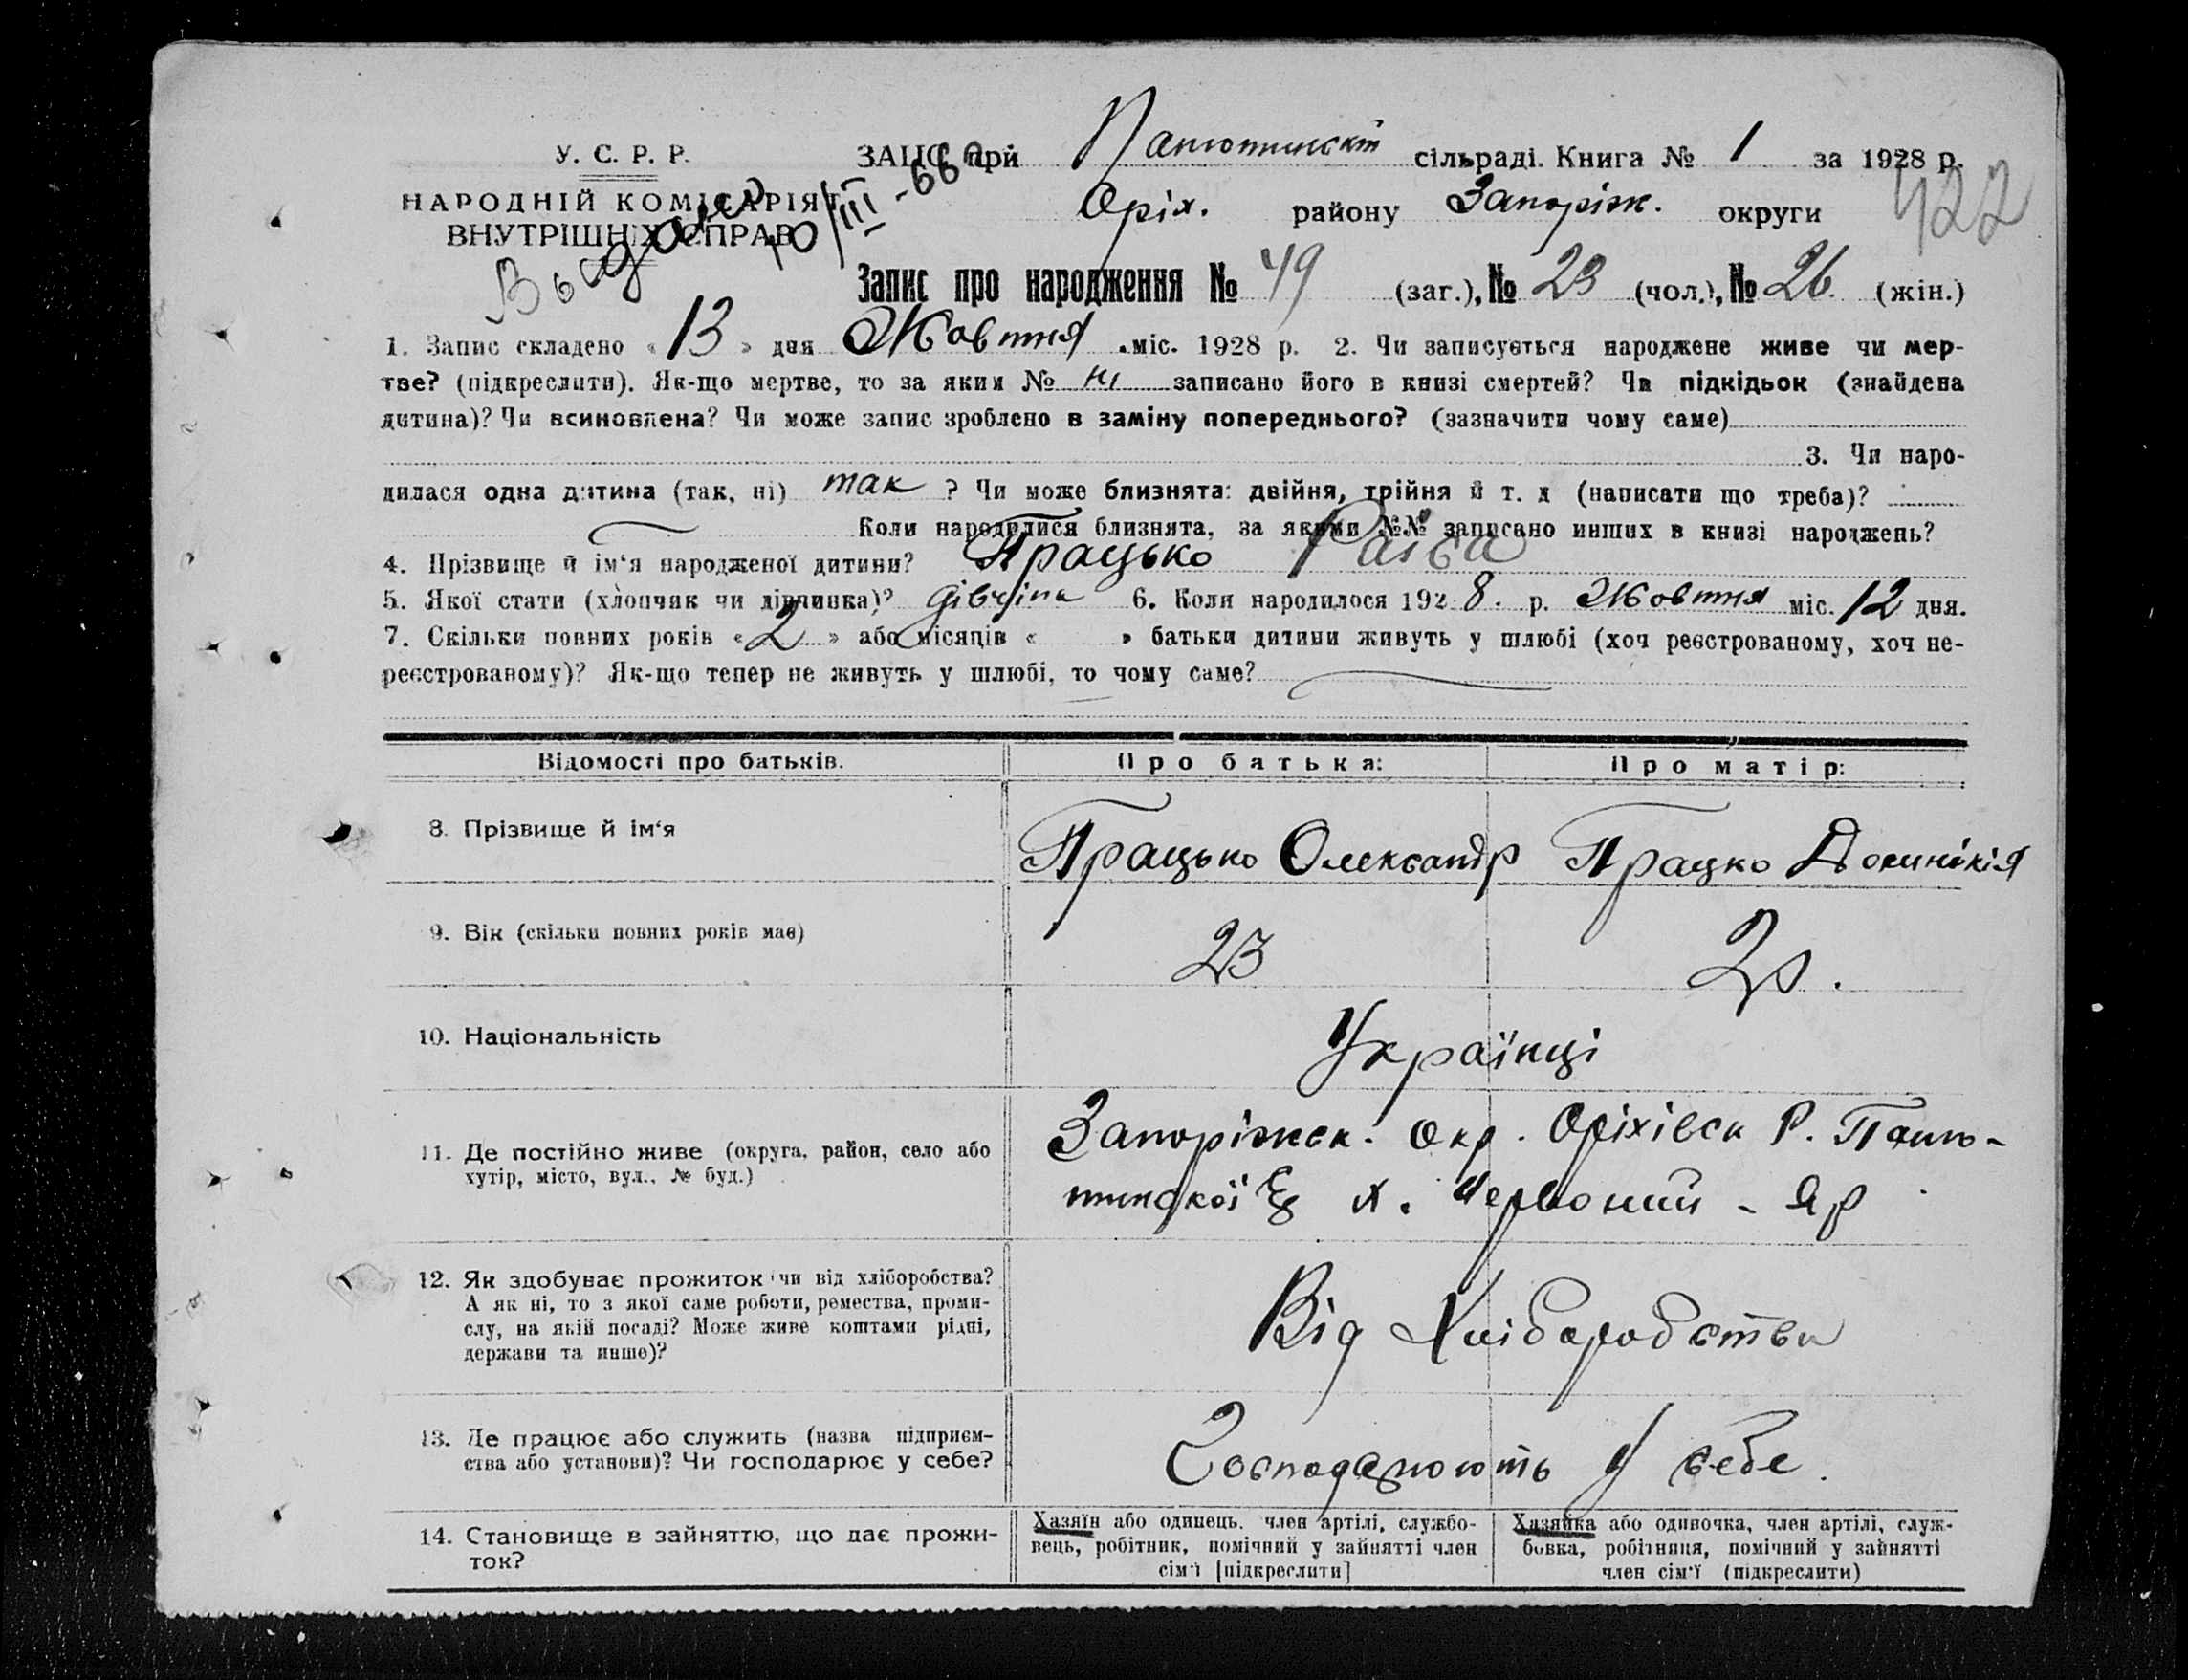 У. С. Р. Р.
НАРОДНІЙ КОМІСАРІЯТ
ВНУТРІШНІХ СПРАВ
ЗАЦС при сільраді. Книга № 1 за 1928 р.
Оріх. району Запоріж. округи
422
10/III-66
Запис про народження № 49 (заг.), № 23 (чол.), № 26. (жін.)
1. Запис складено « 13 » дня Жовтня міс. 1928 р. 2. Чи записується народжене живе чи мер-
тве? (підкреслити). Як-що мертве, то за яким № ні записано його в книзі смертей? Чи підкідьок (знайдена
дитина)? Чи всиновлена? Чи може запис зроблено в заміну попереднього? (зазначити чому саме)
3. Чи наро-
дилася одна дитина (так, ні) так ? Чи може близнята: двійня, трійня й т. д (написати що треба)?
Коли народилися близнята, за якими №№ записано инших в книзі народжень?
4. Прізвище й ім'я народженої дитини? Працько Раїса
5. Якої стати (хлопчик чи дівчинка)? дівчина 6. Коли народилося 1928. р. Жовтня міс. 12 дня.
7. Скільки повних років « 2 » або місяців « » батьки дитини живуть у шлюбі (хоч реєстрованому, хоч не-
реєстрованому)? Як-що тепер не живуть у шлюбі, то чому саме?
Відомості про батьків.
Про батька:
Про матір:
8. Прізвище й ім'я
Працько Олександр
Працко Доминікія
9. Вік (скільки повних років має)
23
10. Національність
Українці
11. Де постійно живе (округа, район, село або
хутір, місто, вул., № буд.)
Запоріжск. Окр. Оріхівск Р. Паню-
тинської х. Червоний - Яр
12. Як здобуває прожиток чи від хліборобства?
А як ні, то з якої саме роботи, ремества, проми-
слу, на якій посаді? Може живе коштами рідні,
держави та инше)?
Від Хліборобства
13. Де працює або служить (назва підприєм-
ства або установи)? Чи господарює у себе?
Господарюють у себе.
14. Становище в зайняттю, що дає прожи-
ток?
Хазяїн або одинець. член артілі, службо-
вець, робітник, помічний у зайнятті член
сім'ї [підкреслити]
Хазяйка або одиночка, член артілі, служ-
бовка, робітниця, помічний у зайнятті
член сім'ї (підкреслити)